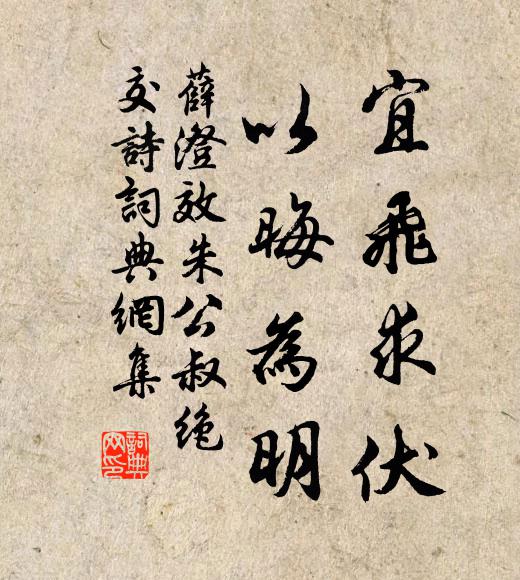 宜飛求伏
以晦為明
薛澄效朱公叔绝
交詩詞典網集
詞典
网印